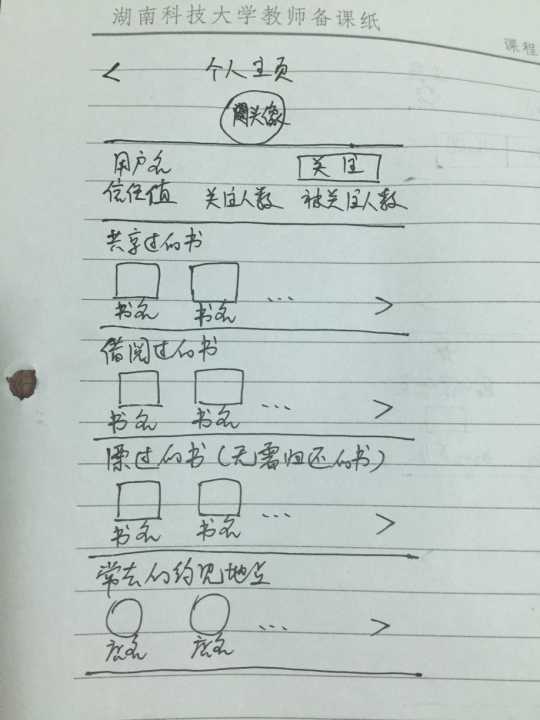 湖南科技大学教师备课纸
课程
< 个人主页
头像
用户名 关注
信任值 关注人数 被关注人数
共享过的书
书名 书名 ... >
借阅过的书
书名 书名 ... >
漂过的书(无需归还的书)
书名 书名 ... >
常去的约见地点
店名 店名 ... >